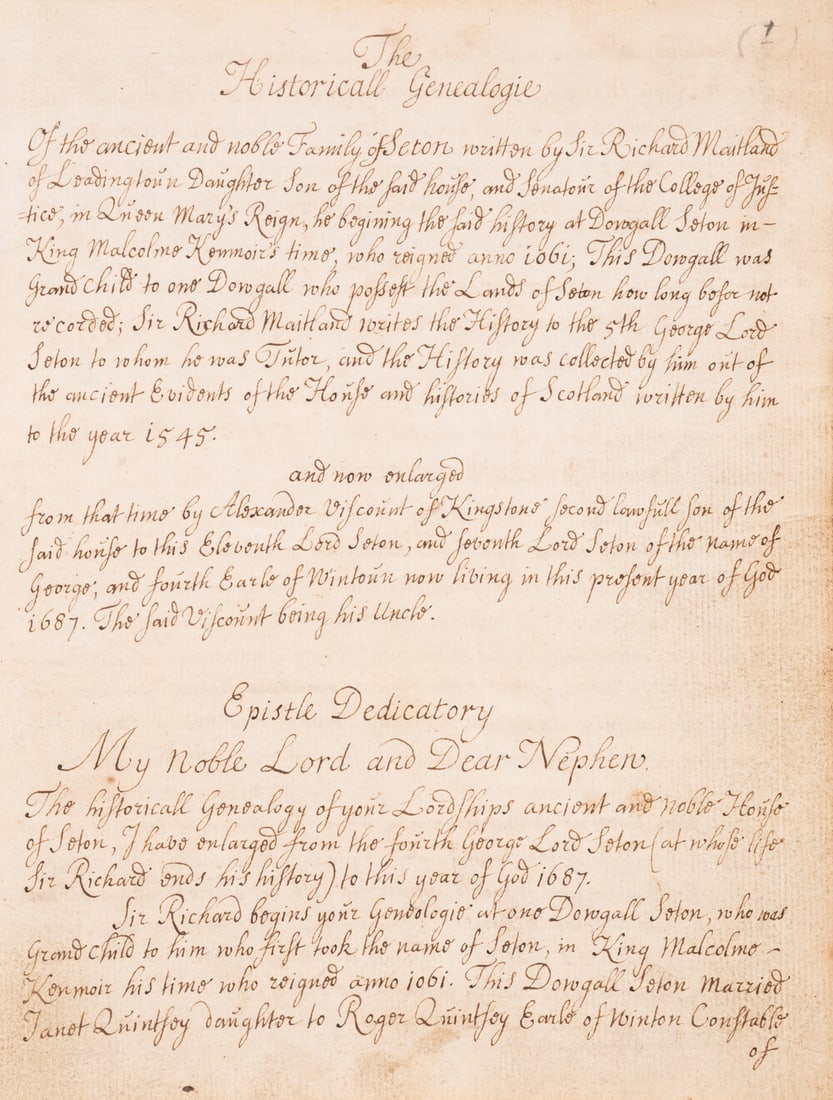 (1)
The
Historicall Genealogie
Of the ancient and noble Family of Seton written by Sir Richard Maitland
of Leadingtoun Daughter Son of the said house, and Senatour of the College of Jus-
-tice, in Queen Mary's Reign, he begining the said history at Dowgall Seton in-
King Malcolme Kenmoir's time, who reigned anno 1061; This Dowgall was
Grand Child to one Dowgall who possest the Lands of Seton how long befor not
recorded; Sir Richard Maitland writes the History to the 5th George Lord
Seton to whom he was Tutor, and the History was collected by him out of
the ancient Evidents of the House and histories of Scotland written by him
to the year 1545.
and now enlarged
from that time by Alexander Viscount of Kingstone second lawfull son of the
said house to this Eleventh Lord Seton, and seventh Lord Seton of the name of
George, and fourth Earle of Wintoun now living in this present year of God
1687. The said Viscount being his Uncle.
Epistle Dedicatory
My Noble Lord and Dear Nephew.
The historicall Genealogy of your Lordships ancient and Noble House
of Seton, I have enlarged from the fourth George Lord Seton (at whose life
Sir Richard ends his history) to this year of God 1687.
Sir Richard begins your Geneologie at one Dowgall Seton, who was
Grand Child to him who first took the name of Seton, in King Malcolme -
Kenmoir his time who reigned anno 1061. This Dowgall Seton Married
Janet Quintsey daughter to Roger Quintsey Earle of Winton Constable
of